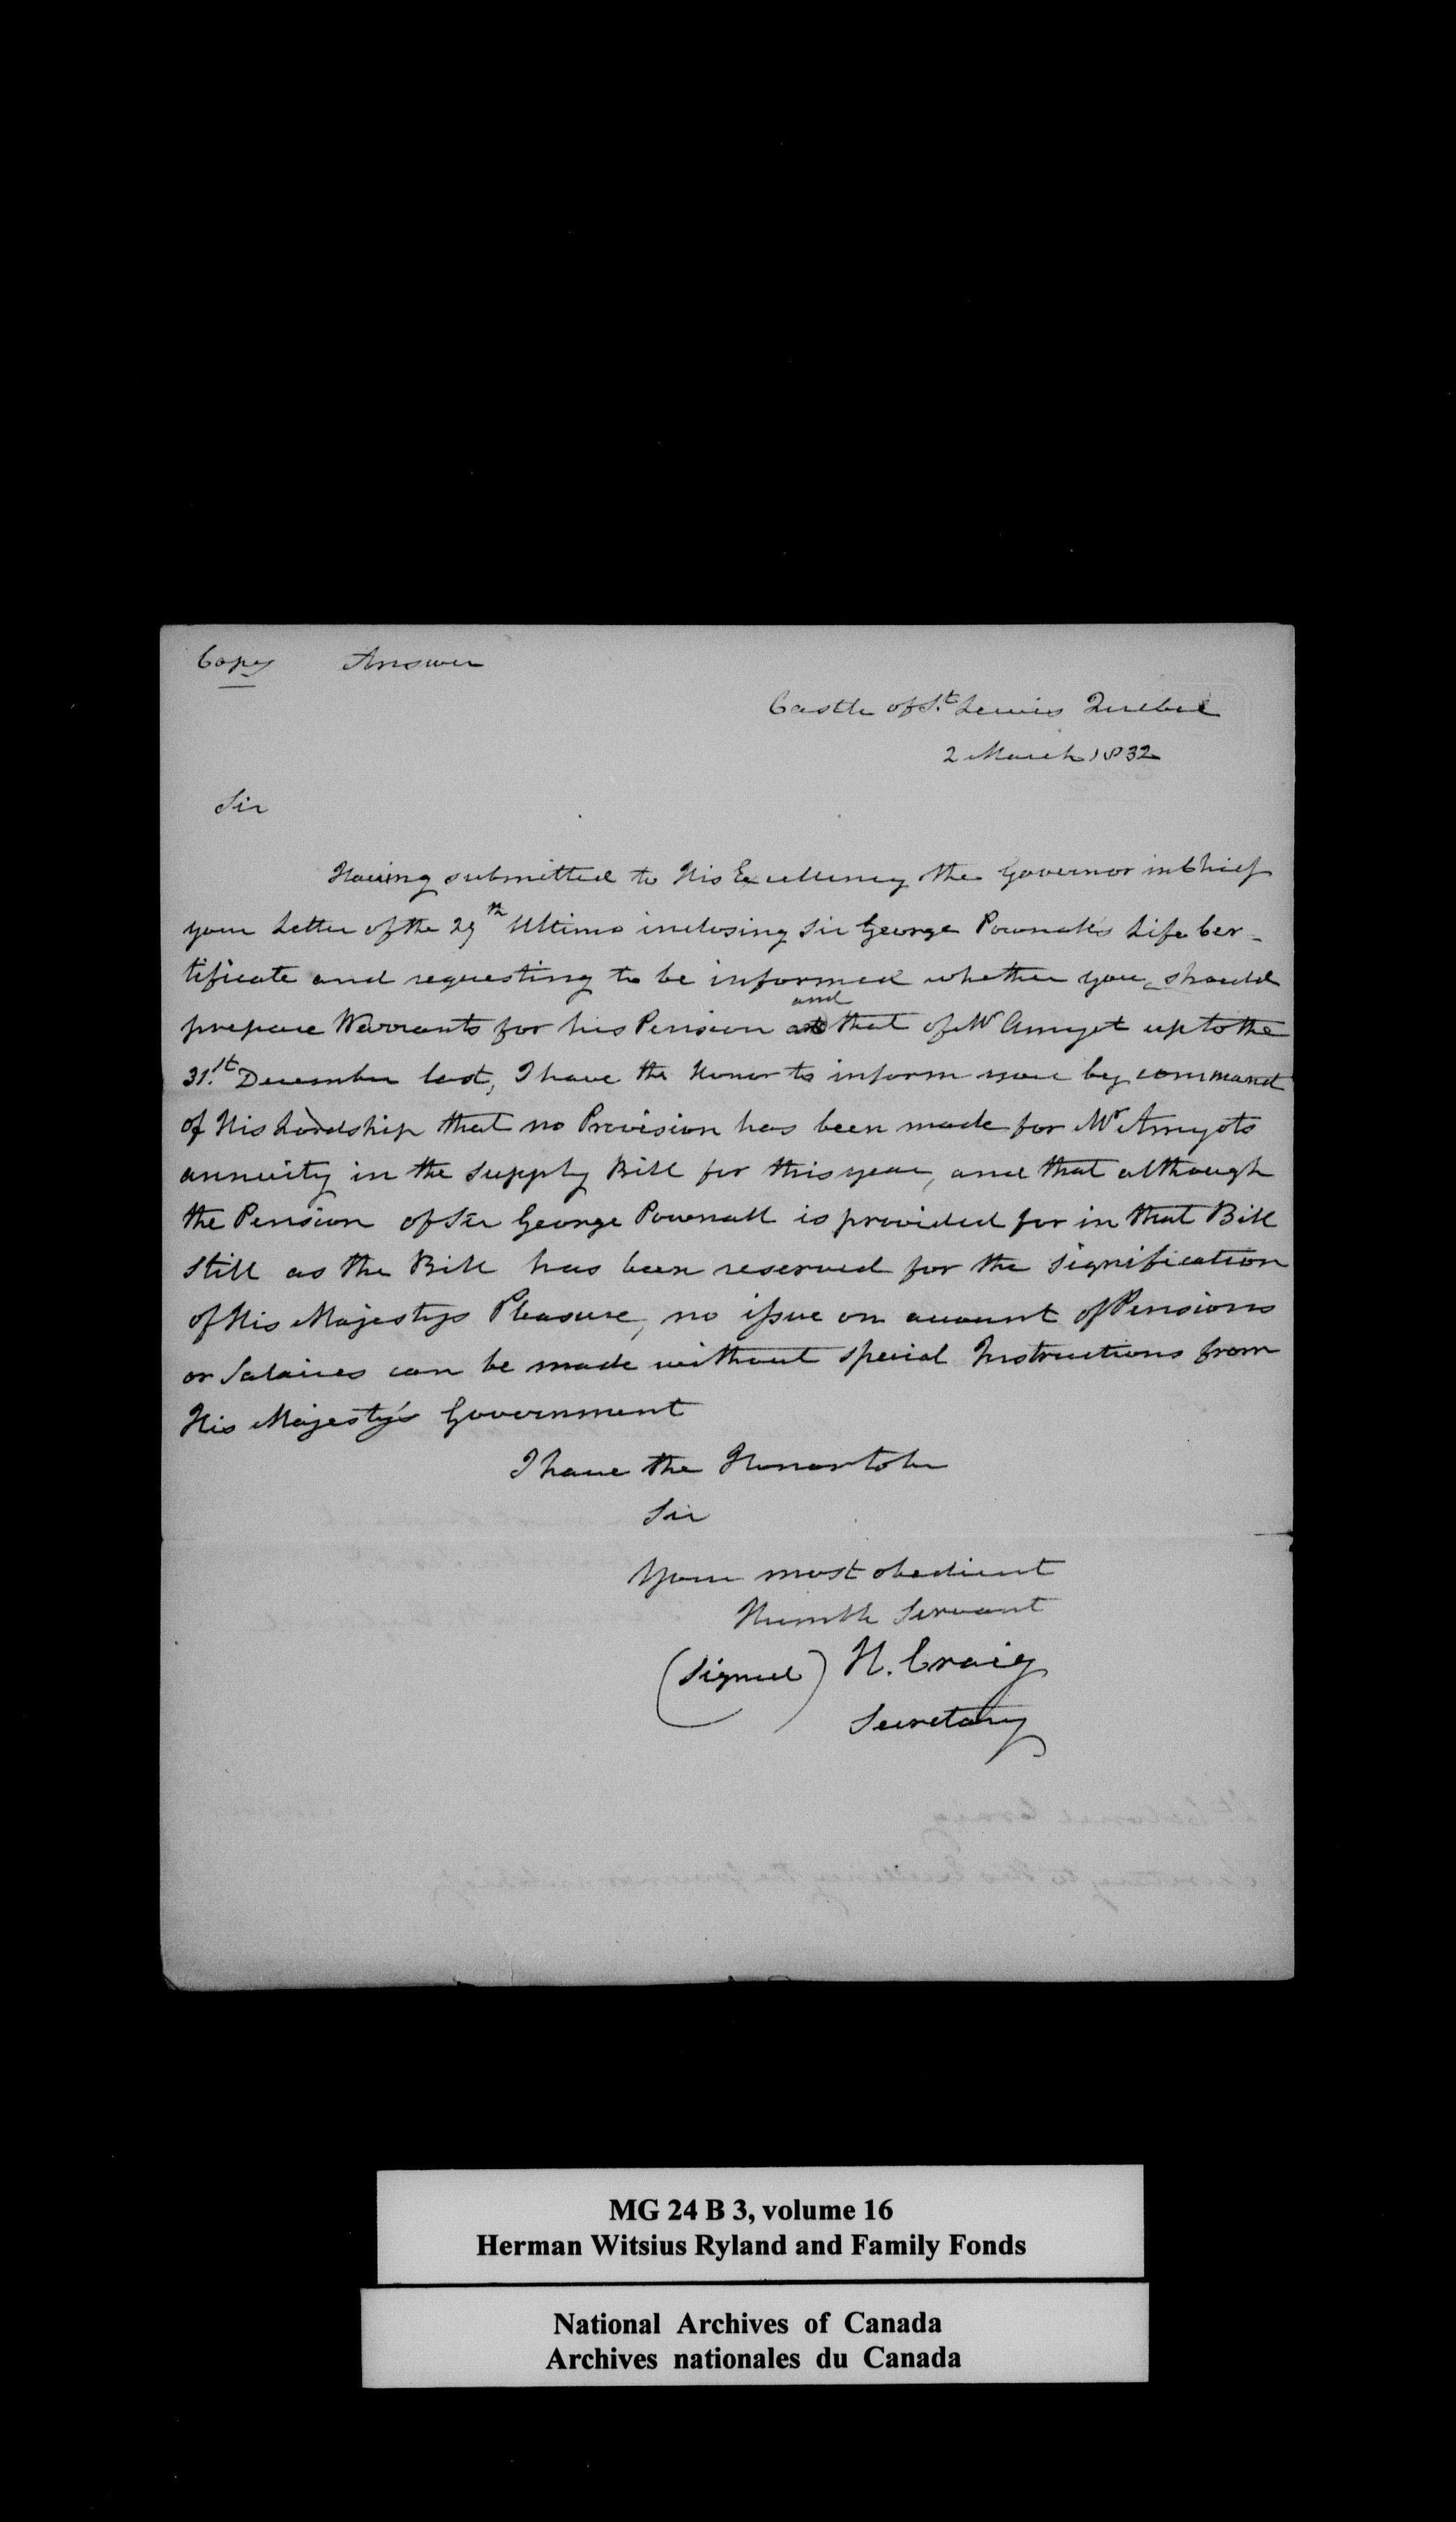 Copy Answer
Castle of St. Lewis Quebec
2 March 1832
Sir
Having submitted to His Excellency the Governor in Chief
your Letter of the 29th Ultimo inclosing Sir George Pownall's Life Cer-
tificate and requesting to be informed whether you should
and
prepare Warrants for his Pension that of Mr Amyot up to the
31st. December last, I have the Honor to inform you by command
of His Lordship that no Provision has been made for Mr Amyots
annuity in the Supply Bill for this year, and that although
the Pension of Sir George Pownall is provided for in that Bill
still as the Bill has been reserved for the signification
of His Majestys Pleasure, no issue on account of Pensions
or Salaries can be made without special Instructions from
His Majesty's Government
I have the Honor to be
Sir
Your most obedient
Humble Servant
(Signed) H. Craig
Secretary
MG 24 B 3, volume 16
Herman Witsius Ryland and Family Fonds
National Archives of Canada
Archives nationales du Canada